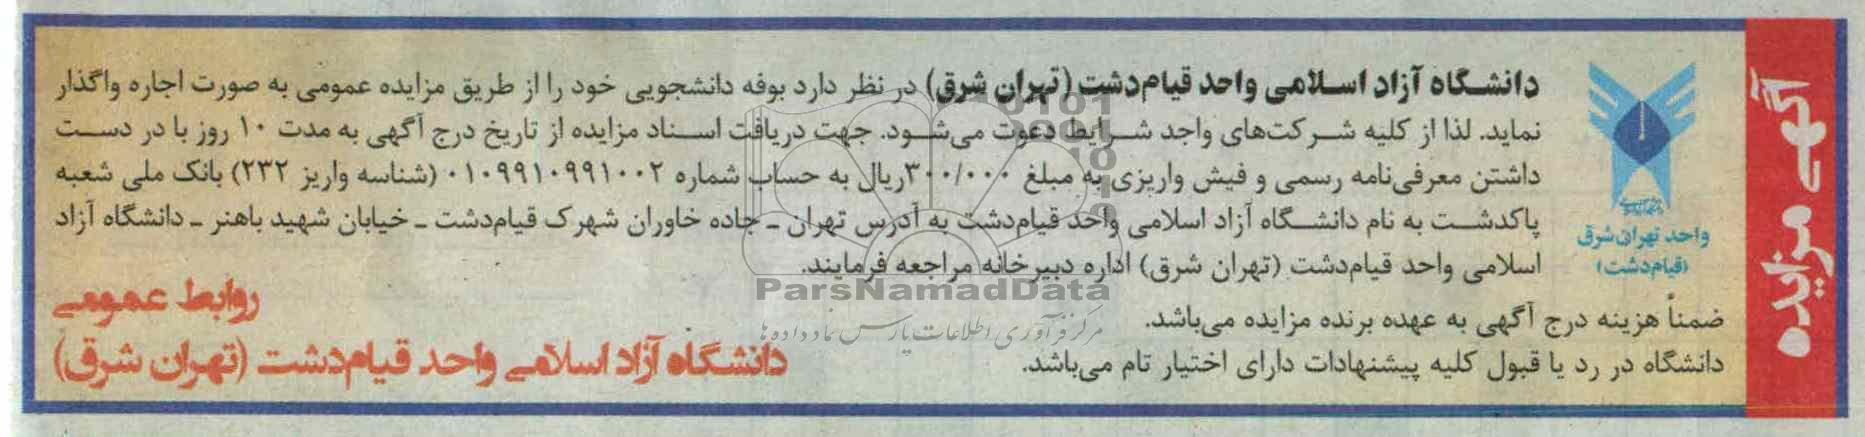 آگهی مزایده
واحد تهران شرق
(قیام‌دشت)
دانشگاه آزاد اسلامی واحد قیام‌دشت (تهران شرق) در نظر دارد بوفه دانشجویی خود را از طریق مزایده عمومی به صورت اجاره واگذار
نماید. لذا از کلیه شرکت‌های واجد شرایط دعوت می‌شود. جهت دریافت اسناد مزایده از تاریخ درج آگهی به مدت ۱۰ روز با در دست
داشتن معرفی‌نامه رسمی و فیش واریزی به مبلغ ۳۰۰/۰۰۰ریال به حساب شماره ۰۱۰۹۹۱۰۹۹۱۰۰۲ (شناسه واریز ۲۳۲) بانک ملی شعبه
پاکدشت به نام دانشگاه آزاد اسلامی واحد قیام‌دشت به آدرس تهران ـ جاده خاوران شهرک قیام‌دشت ـ خیابان شهید باهنر ـ دانشگاه آزاد
اسلامی واحد قیام‌دشت (تهران شرق) اداره دبیرخانه مراجعه فرمایند.
ParsNamadData
مرکز فرآوری اطلاعات پارس نماد داده ها
ضمناً هزینه درج آگهی به عهده برنده مزایده می‌باشد.
دانشگاه در رد یا قبول کلیه پیشنهادات دارای اختیار تام می‌باشد.
روابط عمومی
دانشگاه آزاد اسلامی واحد قیام‌دشت (تهران شرق)